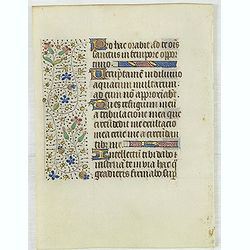 Pro hac orabit ad te ois
sanctus in tempore oppor
tuno
Veruptamen in diluuio
aquarum multarum
ad eum non aproximabt
Tu es refugium meu
a tribulacione mea que
circudedit me exultacio
mea erue me a circudan
tibus me
Intellectu tibi dabo et
instruā te in via hac q
gradieris firmabo sup